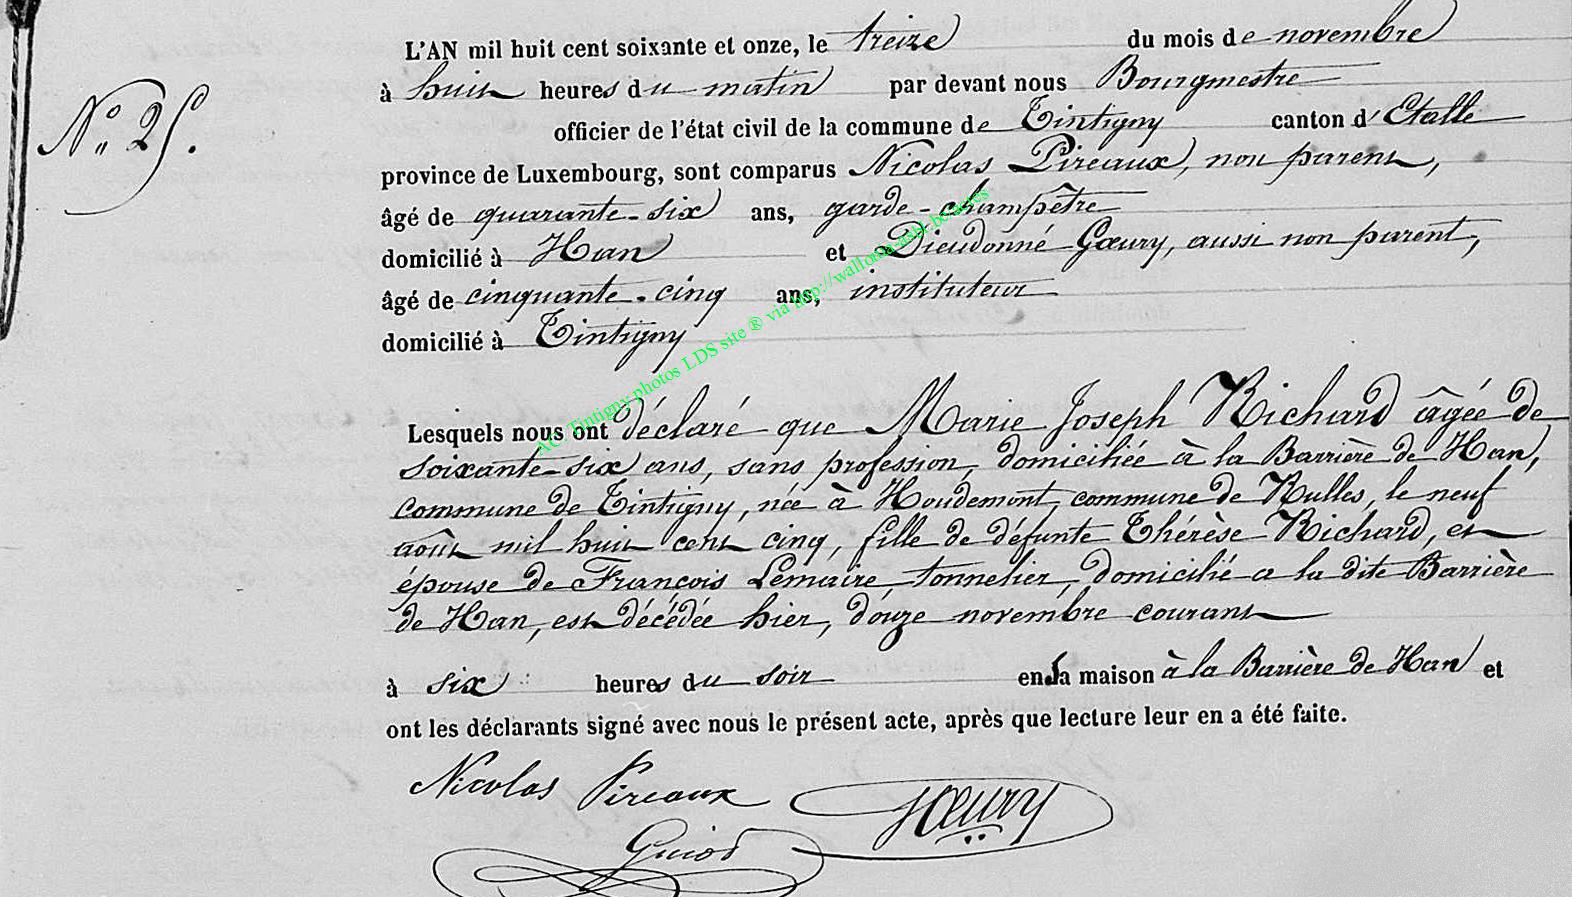 L'AN mil huit cent soixante et onze, le treize du mois de novembre
N° 25.
à huit heures du matin par devant nous Bourgmestre
officier de l'état civil de la commune de Tintigny canton d'Etalle
province de Luxembourg, sont comparus Nicolas Pireaux, non parent,
âgé de quarante-six ans, garde-champêtre
domicilié à Han et Dieudonné Gœury, aussi non parent,
âgé de cinquante-cinq ans, instituteur
domicilié à Tintigny
AC Tintigny photos LDS site ® via http://wallonia-asbl.be/actes
Lesquels nous ont déclaré que Marie Joseph Richard âgée de
soixante-six ans, sans profession, domiciliée à la Barrière de Han,
commune de Tintigny, née à Houdemont, commune de Rulles, le neuf
août mil huit cent cinq, fille de défunte Thérèse Richard, et
épouse de François Lemaire, tonnelier, domicilié a la dite Barrière
de Han, est décédée hier, douze novembre courant
à six heures du soir en sa maison à la Barrière de Han et
ont les déclarants signé avec nous le présent acte, après que lecture leur en a été faite.
Nicolas Pireaux Gœury